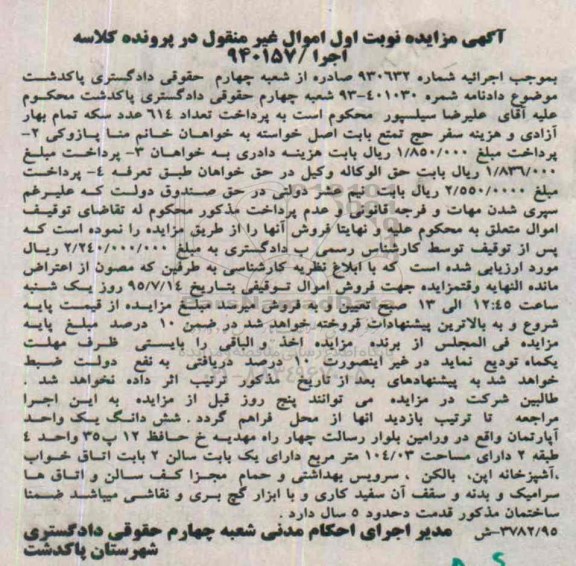 آگهی مزایده نوبت اول اموال غیر منقول در پرونده کلاسه
اجرا /۹۴۰۱۵۷
بموجب اجرائیه شماره ۹۳۰۶۳۲ صادره از شعبه چهارم حقوقی دادگستری پاکدشت
موضوع دادنامه شمره ۴۰۱۰۳۰-۹۳ شعبه چهارم حقوقی دادگستری پاکدشت محکوم
علیه آقای علیرضا سیلسپور محکوم است به پرداخت تعداد ۶۱۴ عدد سکه تمام بهار
آزادی و هزینه سفر حج تمتع بابت اصل خواسته به خواهان خانم منا پازوکی ۲-
پرداخت مبلغ ۱/۸۵۰/۰۰۰ ریال بابت هزینه دادری به خواهان ۳- پرداخت مبلغ
۱/۸۳۶/۰۰۰ ریال بابت حق الوکاله وکیل در حق خواهان طبق تعرفه ۴- پرداخت
مبلغ ۲/۵۵۰/۰۰۰۰ ریال بابت نیم عشر دولتی در حق صندوق دولت که علیرغم
سپری شدن مهات و فرجه قانونی و عدم پرداخت مذکور محکوم له تقاضای توقیف
اموال متعلق به محکوم علیه و نهایتا فروش آنها را از طریق مزایده را نموده است که
پس از توقیف توسط کارشناس رسمی ب دادگستری به مبلغ ۲/۲۴۰/۰۰۰/۰۰۰ ریال
مورد ارزیابی شده است که با ابلاغ نظریه کارشناسی به طرفین که مصون از اعتراض
مانده النهایه وقتمزایده جهت فروش اموال توقیفی بتاریخ ۹۵/۷/۱۴ روز یک شنبه
ساعت ۱۲:۴۵ الی ۱۳ صبح تعیین و به فروش میرسد مبلغ مزایده از قیمت پایه
شروع و به بالاترین پیشنهادات فروخته خواهد شد در ضمن ۱۰ درصد مبلغ پایه
مزایده فی المجلس از برنده مزایده اخذ و الباقی را بایستی ظرف مهلت
یکماه تودیع نماید در غیر اینصورت ۱۰ درصد دریافتی به نفع دولت ضبط
خواهد شد به پیشنهادهای بعد از تاریخ مذکور ترتیب اثر داده نخواهد شد .
طالبین شرکت در مزایده می توانند پنج روز قبل از مزایده به این اجرا
مراجعه تا ترتیب بازدید انها از محل فراهم گردد . شش دانگ یک واحد
آپارتمان واقع در ورامین بلوار رسالت چهار راه مهدیه خ حافظ ۱۲ پ۳۵ واحد ۴
طبقه ۲ دارای مساحت ۱۰۴/۰۳ متر مربع دارای یک بابت سالن ۲ بابت اتاق خواب
،آشپزخانه اپن، بالکن ، سرویس بهداشتی و حمام مجزا کف سالن و اتاق ها
سرامیک و بدنه و سقف آن سفید کاری و با ابزار گچ بری و نقاشی میباشد ضمنا
ساختمان مذکور قدمت دحدود ۵ سال دارد .
۳۷۸۲/۹۵-ش مدیر اجرای احکام مدنی شعبه چهارم حقوقی دادگستری
شهرستان پاکدشت